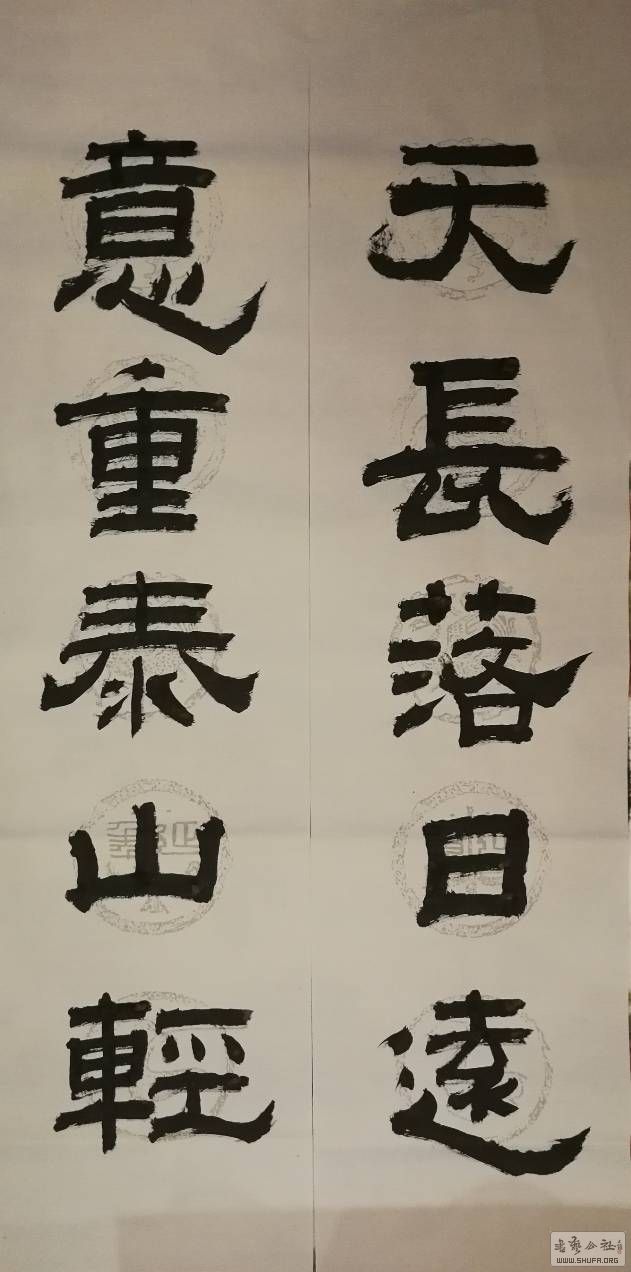 天長落日遠
意重泰山輕
WWW.SHUFA.ORG